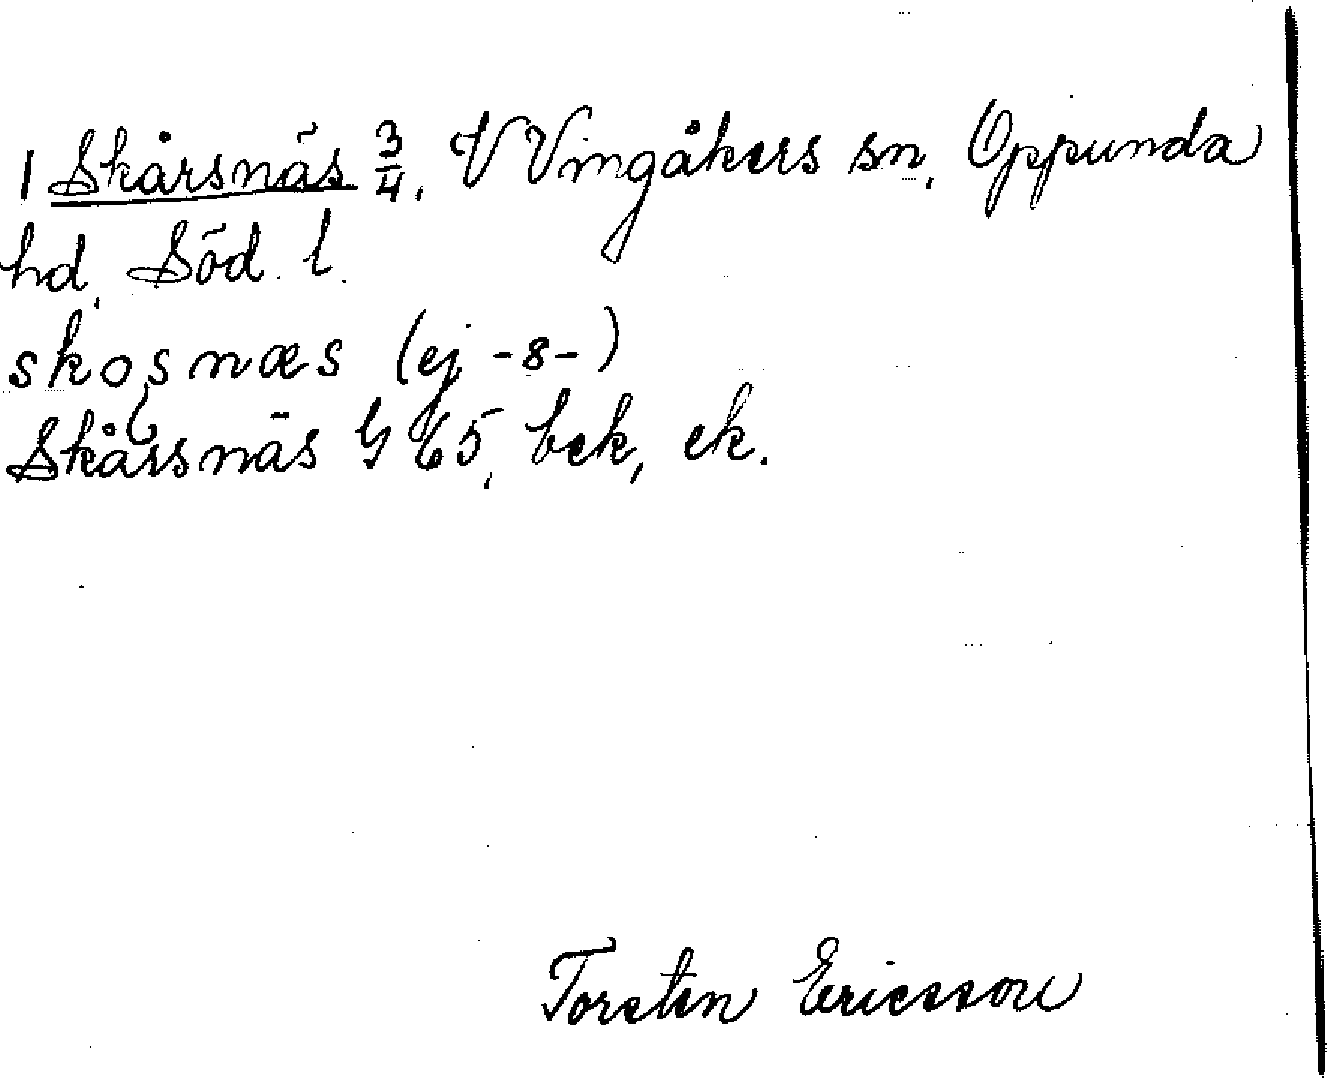 1 Skårsnäs 3/4, V Vingåkers sn, Oppunda
hd, Söd. l.
skosnæs (ej -s-)
Skårsnäs G 65, bek, ek.
Torsten Ericsson